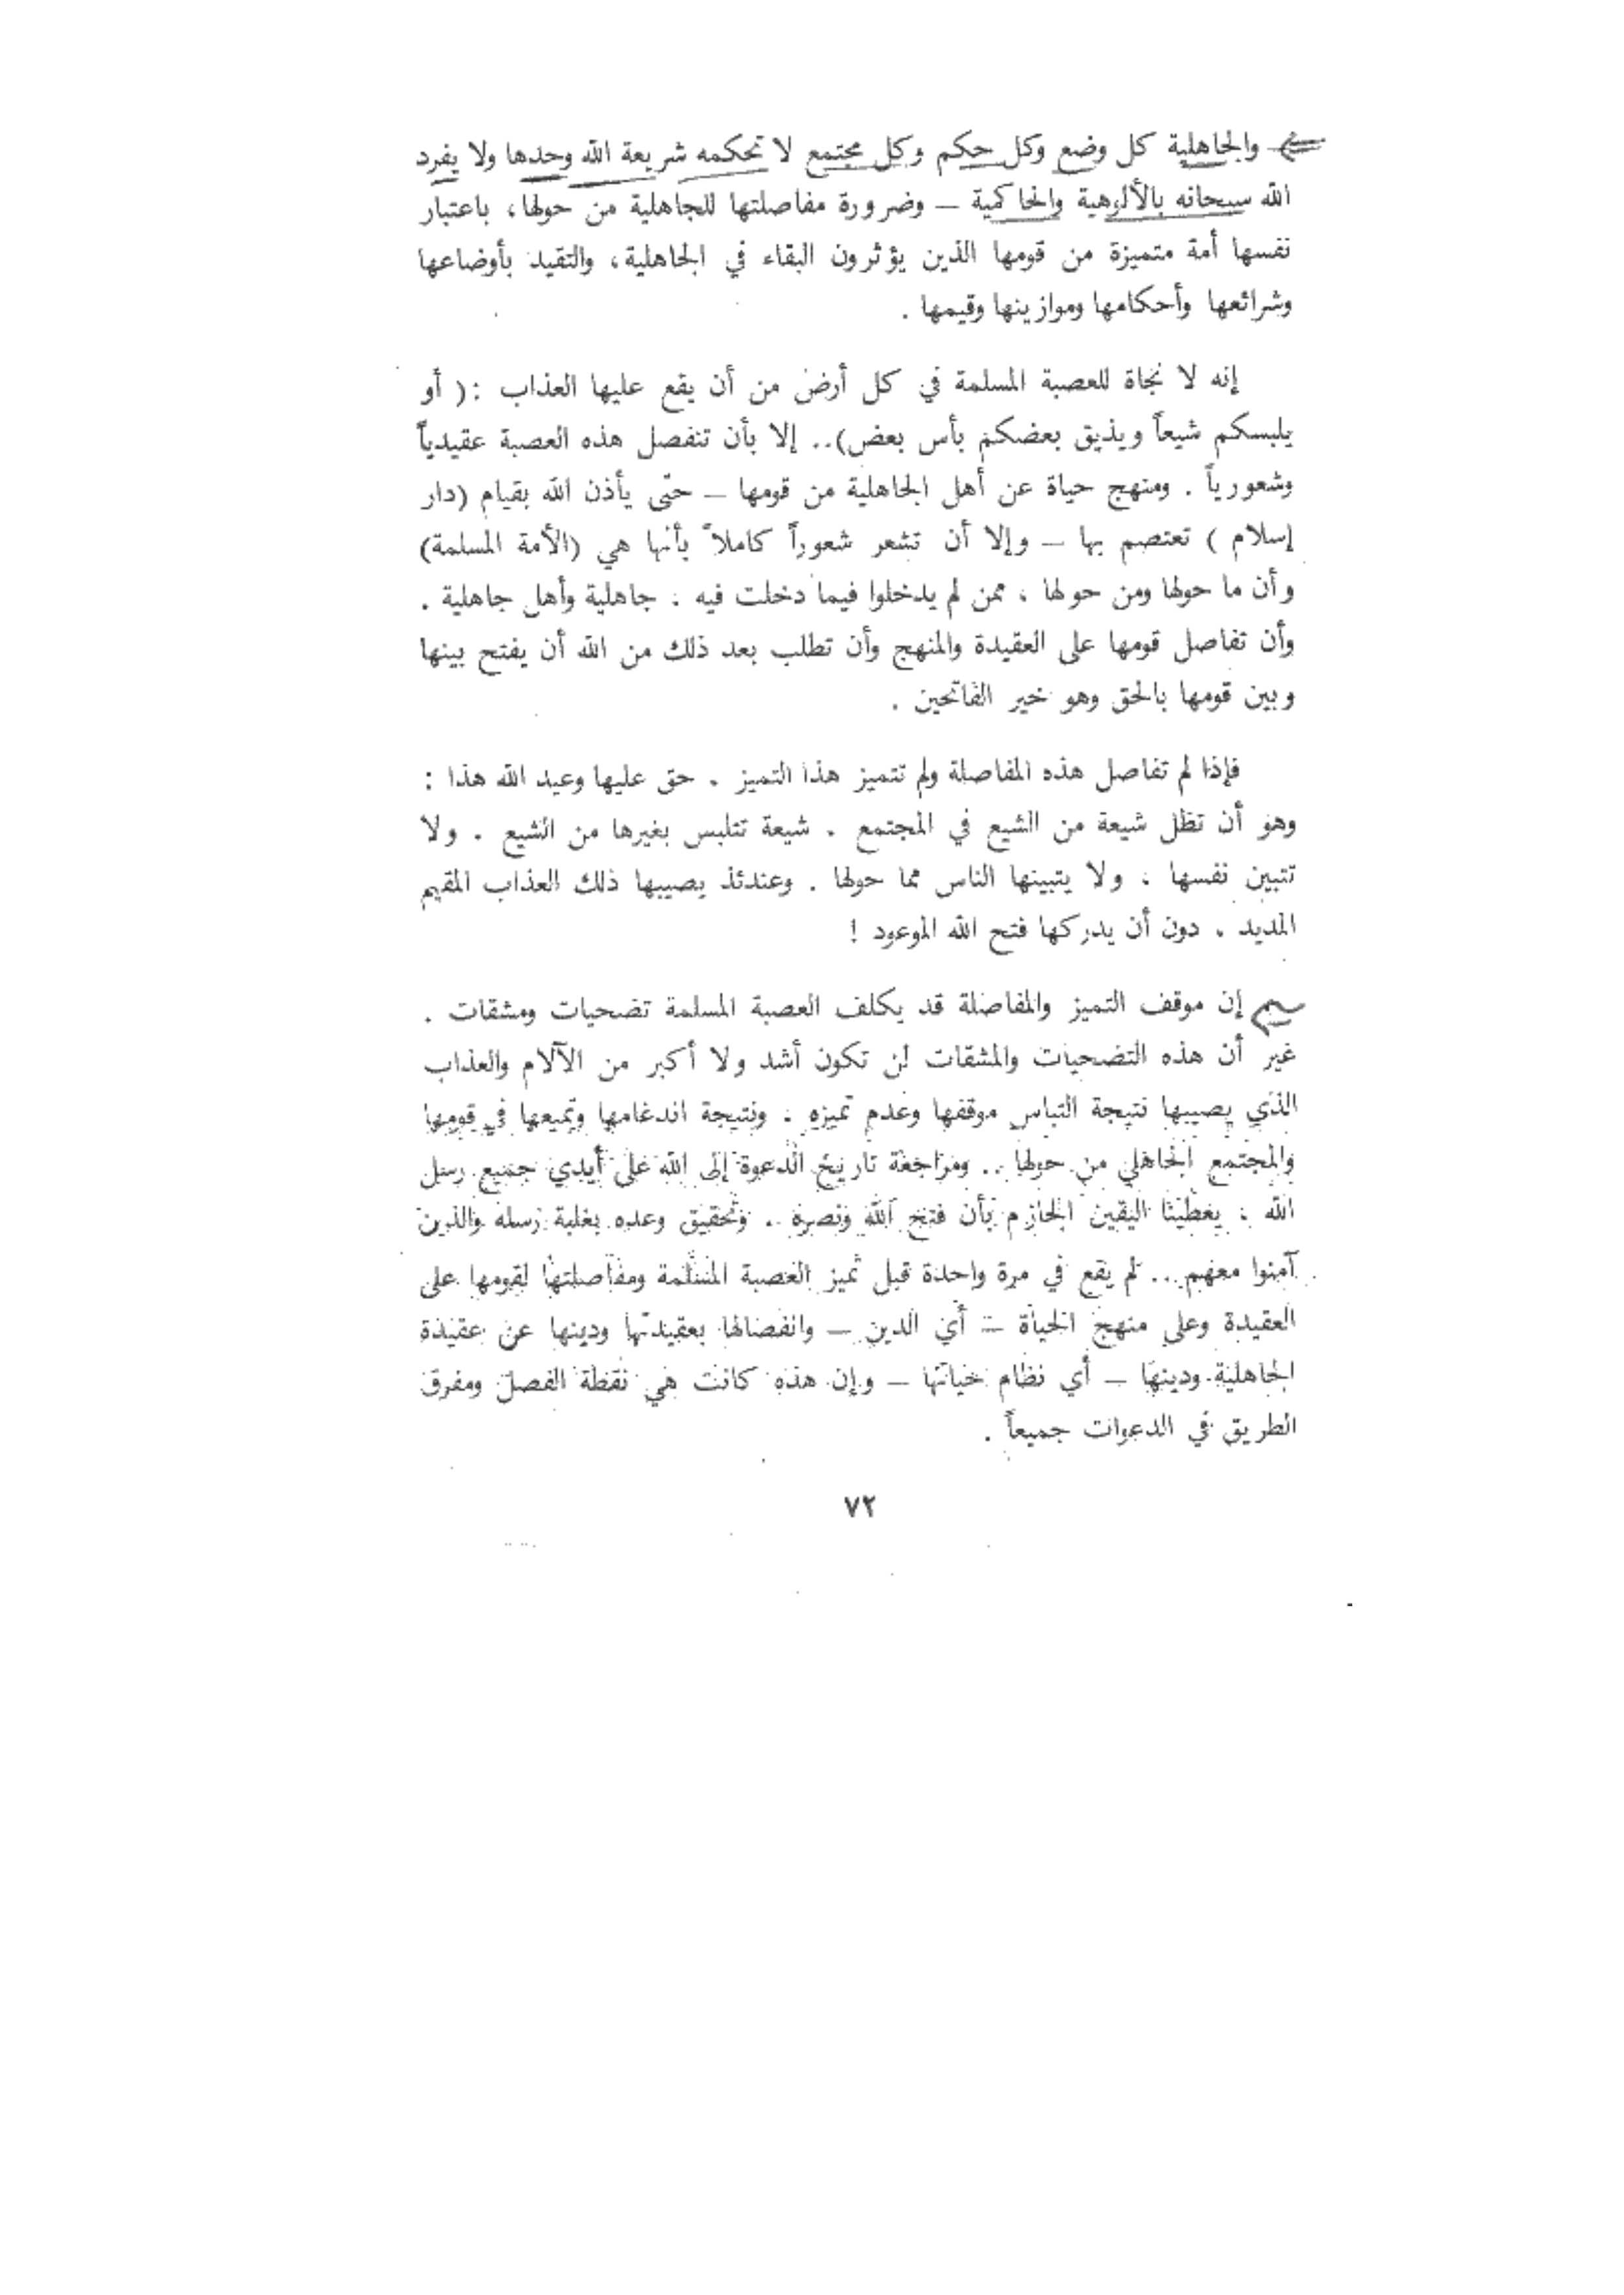 والجاهلية كل وضع وكل حكم وكل مجتمع لا تحكمه شريعة الله وحدها ولا يفرد
الله سبحانه بالألوهية والحاكمية — وضرورة مفاصلتها للجاهلية من حولها، باعتبار
نفسها أمة متميزة من قومها الذين يؤثرون البقاء في الجاهلية، والتقيد بأوضاعها
وشرائعها وأحكامها وموازينها وقيمها .
إنه لا نجاة للعصبة المسلمة في كل أرض من أن يقع عليها العذاب : ( أو
يلبسكم شيعاً ويذيق بعضكم بأس بعض).. إلا بأن تنفصل هذه العصبة عقيدياً
وشعورياً . ومنهج حياة عن أهل الجاهلية من قومها — حتى يأذن الله بقيام (دار
إسلام ) تعتصم بها — وإلا أن تشعر شعوراً كاملاً بأنها هي (الأمة المسلمة)
وأن ما حولها ومن حولها ، ممن لم يدخلوا فيما دخلت فيه ، جاهلية وأهل جاهلية .
وأن تفاصل قومها على العقيدة والمنهج وأن تطلب بعد ذلك من الله أن يفتح بينها
وبين قومها بالحق وهو خير الفاتحين .
فإذا لم تفاصل هذه المفاصلة ولم تتميز هذا التميز . حق عليها وعيد الله هذا :
وهو أن تظل شيعة من الشيع في المجتمع . شيعة تتلبس بغيرها من الشيع . ولا
تتبين نفسها ، ولا يتبينها الناس مما حولها . وعندئذ يصيبها ذلك العذاب المقيم
المديد . دون أن يدركها فتح الله الموعود !
إن موقف التميز والمفاصلة قد يكلف العصبة المسلمة تضحيات ومشقات .
غير أن هذه التضحيات والمشقات لن تكون أشد ولا أكبر من الآلام والعذاب
الذي يصيبها نتيجة التباس موقفها وعدم تميزه . ونتيجة اندغامها وتميعها في قومها
والمجتمع الجاهلي من حولها .. ومراجعة تاريخ الدعوة إلى الله على أيدي جميع رسل
الله ، يعطينا اليقين الجازم بأن فتح الله ونصره . وتحقيق وعده بغلبة رسله والذين
آمنوا معهم .. لم يقع في مرة واحدة قبل تميز العصبة المسلمة ومفاصلتها لقومها على
العقيدة وعلى منهج الحياة — أي الدين — وانفصالها بعقيدتها ودينها عن عقيدة
الجاهلية ودينها — أي نظام حياتها — وإن هذه كانت هي نقطة الفصل ومفرق
الطريق في الدعوات جميعاً .
٧٢